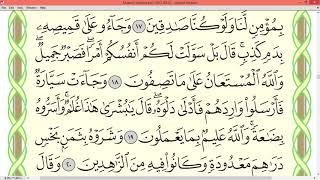 بِمُؤْمِنٍ لَّنَا وَلَوْ كُنَّا صَٰدِقِينَ ١٧ وَجَآءُو عَلَىٰ قَمِيصِهِۦ
بِدَمٍ كَذِبٍ ۚ قَالَ بَلْ سَوَّلَتْ لَكُمْ أَنفُسُكُمْ أَمْرًا ۖ فَصَبْرٌ جَمِيلٌ ۖ
وَٱللَّهُ ٱلْمُسْتَعَانُ عَلَىٰ مَا تَصِفُونَ ١٨ وَجَآءَتْ سَيَّارَةٌ
فَأَرْسَلُوا۟ وَارِدَهُمْ فَأَدْلَىٰ دَلْوَهُۥ ۖ قَالَ يَٰبُشْرَىٰ هَٰذَا غُلَٰمٌ ۚ وَأَسَرُّوهُ
بِضَٰعَةً ۚ وَٱللَّهُ عَلِيمٌۢ بِمَا يَعْمَلُونَ ١٩ وَشَرَوْهُ بِثَمَنٍۭ بَخْسٍ
دَرَٰهِمَ مَعْدُودَةٍ وَكَانُوا۟ فِيهِ مِنَ ٱلزَّٰهِدِينَ ٢٠ وَقَالَ